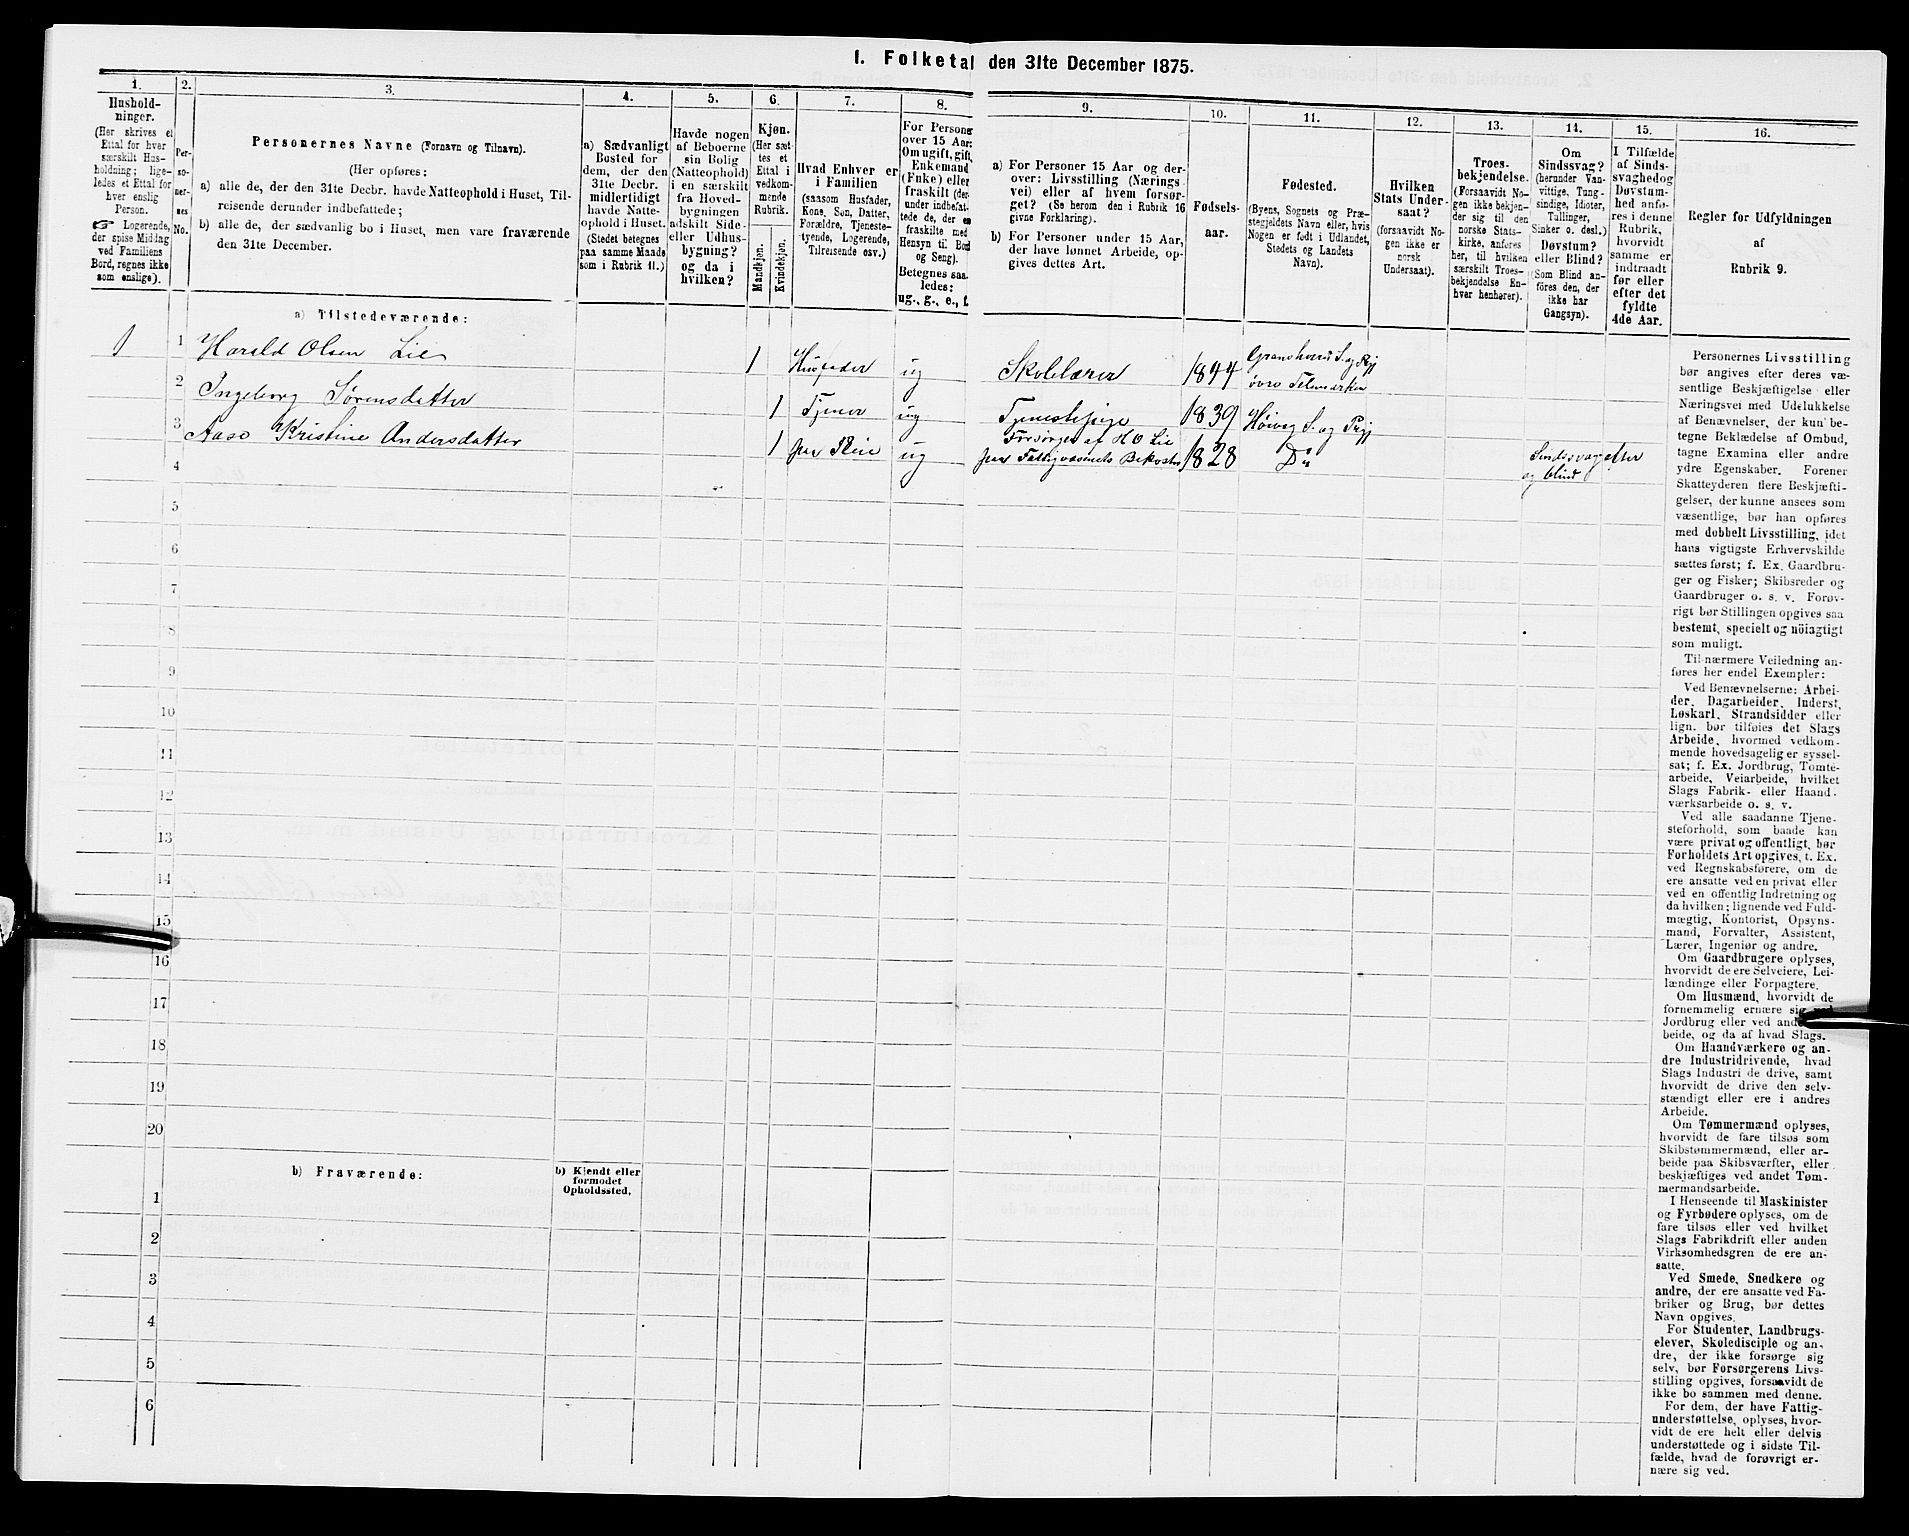 I. Folketal den 31te December 1875.
1. 2. 3. 4. 5. 6. 7. 8. 9. 10. 11. 12. 13. 14. 15. 16.
Hushold-
ninger.
(Her skrives et
Ettal for hver
særskilt Hus-
holdning; lige-
ledes et Ettal for
hver enslig
Person.
☞ Logerende,
der spise Middag
ved Familiens
Bord, regnes ikke
som enslige).
Per-
so-
ner-
nes
No.
Personernes Navne (Fornavn og Tilnavn).
(Her opføres:
a) alle de, der den 31te Decbr. havde Natteophold i Huset, Til-
reisende derunder indbefattede;
b) alle de, der sædvanlig bo i Huset, men vare fraværende
den 31te December.
a) Sædvanligt
Bosted for
dem, der den
31te Decbr.
midlertidigt
havde Natte-
ophold i Huset.
(Stedet betegnes
paa samme Maade
som i Rubrik 11.)
Havde nogen
af Beboerne
sin Bolig
(Natteophold)
i en særskilt
fra Hoved-
bygningen
adskilt Side-
eller Udhus-
bygning?
og da i
hvilken?
Kjøn.
(Her sæt-
tes et
Ettal i
vedkom-
mende
Rubrik.
Mandkjøn.
Kvindekjøn.
Hvad Enhver er
i Familien
(saasom Husfader,
Kone, Søn, Datter,
Forældre, Tjeneste-
tyende, Logerende,
Tilreisende osv.)
For Personer
over 15 Aar:
Om ugift, gift,
Enkemand
(Enke) eller
fraskilt (der-
under indbefat-
tede de, der er
fraskilte med
Hensyn til Bord
og Seng).
Betegnes saa-
ledes:
ug., g., e., f.
a) For Personer 15 Aar og der-
over: Livsstilling (Nærings-
vei) eller af hvem forsør-
get? (Se herom den i Rubrik 16
givne Forklaring).
b) For Personer under 15 Aar,
der have lønnet Arbeide, op-
gives dettes Art.
Fødsels-
aar.
Fødested.
(Byens, Sognets og Præ-
stegjeldets Navn eller, hvis
Nogen er født i Udlandet,
Stedets og Landets
Navn).
Hvilken
Stats Under-
saat?
(forsaavidt No-
gen ikke er
norsk
Undersaat).
Troes-
bekjendelse.
(Forsaavidt No-
gen ikke bekjen-
der sig til den
norske Stats-
kirke, anføres
her, til hvilken
særskilt Troes-
bekjendelse En-
hver henhører).
Om
Sindssvag?
(herunder Van-
vittige, Tung-
sindige, Idioter,
Tullinger,
Sinker o. desl.)
Døvstum?
eller Blind?
(Som Blind an-
føres den, der
ikke har
Gangsyn).
I Tilfælde
af Sinds-
svaghed og
Døvstum-
hed anfø-
res i denne
Rubrik,
hvorvidt
samme er
indtraadt
før eller
efter det
fyldte
4de Aar.
Regler for Udfyldningen
af
Rubrik 9.
a) Tilstedeværende:
1 1 Harald Olsen Lie 1 Husfader ug Skolelærer 1844 Gransherred S. og Pgj øvre Telemarken
2 Ingeborg Sørensdatter 1 Tjener ug Tjenestepige 1839 Høivag S. og Prgj
3 Aase Kristine Andersdatter 1 ug Forsørges af H O Lie paa Fattigvæsenets Bekostn 1828 Do Sindssvag og blind efter
4
5
6
7
8
9
10
11
12
13
14
15
16
17
18
19
20
b) Fraværende:
b) Kjendt eller
formodet
Opholdssted.
1
2
3
4
5
6
Personernes Livsstilling
bør angives efter deres væ-
sentlige Beskjæftigelse eller
Næringsvei med Udelukkelse
af Benævnelser, der kun be-
tegne Beklædelse af Ombud,
tagne Examina eller andre
ydre Egenskaber. Forener
Skatteyderen flere Beskjæfti-
gelser, der kunne ansees som
væsentlige, bør han opføres
med dobbelt Livsstilling, idet
hans vigtigste Erhvervskilde
sættes først; f. Ex. Gaardbru-
ger og Fisker; Skibsreder og
Gaardbruger o. s. v. Forøv-
rigt bør Stillingen opgives saa
bestemt, specielt og nöiagtigt
som muligt.
Til nærmere Veiledning an-
føres her endel Exempler:
Ved Benævnelserne: Arbei-
der, Dagarbeider, Inderst,
Løskarl, Strandsidder eller
lign. bør tilføies det Slags
Arbeide, hvormed vedkom-
mende hovedsagelig er syssel-
sat; f. Ex. Jordbrug, Tomte-
arbeide, Veiarbeide, hvilket
Slags Fabrik- eller Haand-
værksarbeide o. s. v.
Ved alle saadanne Tjene-
steforhold, som baade kan
være privat og offentligt, bør
Forholdets Art opgives, t. Ex.
ved Regnskabsførere, om de
ere ansatte ved en privat eller
ved en offentlig Indretning og
da hvilken; lignende ved Fuld-
mægtig, Kontorist, Opsyns-
mand, Forvalter, Assistent,
Lærer, Ingeniør og andre.
Om Gaardbrugere oplyses,
hvorvidt de ere Selveiere, Lei-
lændinge eller Forpagtere.
Om Husmænd, hvorvidt de
fornemmelig ernære sig ved
Jordbrug eller ved andet Ar-
beide, og da af hvad Slags.
Om Haandværkere og an-
dre Industridrivende, hvad
Slags Industri de drive, samt
hvorvidt de drive den selv-
stændigt eller ere i andres
Arbeide.
Om Tømmermænd oplyses,
hvorvidt de fare tilsøs som
Skibstømmermænd, eller ar-
beide paa Skibsværfter, eller
beskjæftiges ved andet Tøm-
mermandsarbeide.
I Henseende til Maskinister
og Fyrbødere oplyses, om de
fare tilsøs eller ved hvilket
Slags Fabrikdrift eller anden
Virksomhedsgren de ere an-
satte.
Ved Smede, Snedkere og
andre, der ere ansatte ved Fa-
briker og Brug, bør dettes
Navn opgives.
For Studenter, Landbrugs-
elever, Skoledisciple og an-
dre, der ikke forsørge sig
selv, bør Forsørgerens Livs-
stilling opgives, forsaavidt de
ikke bo sammen med denne.
For dem, der have Fattig-
understøttelse, oplyses, hvor-
vidt de ere helt eller delvis
understøttede og i sidste Til-
fælde, hvad de forøvrigt er-
nære sig ved.